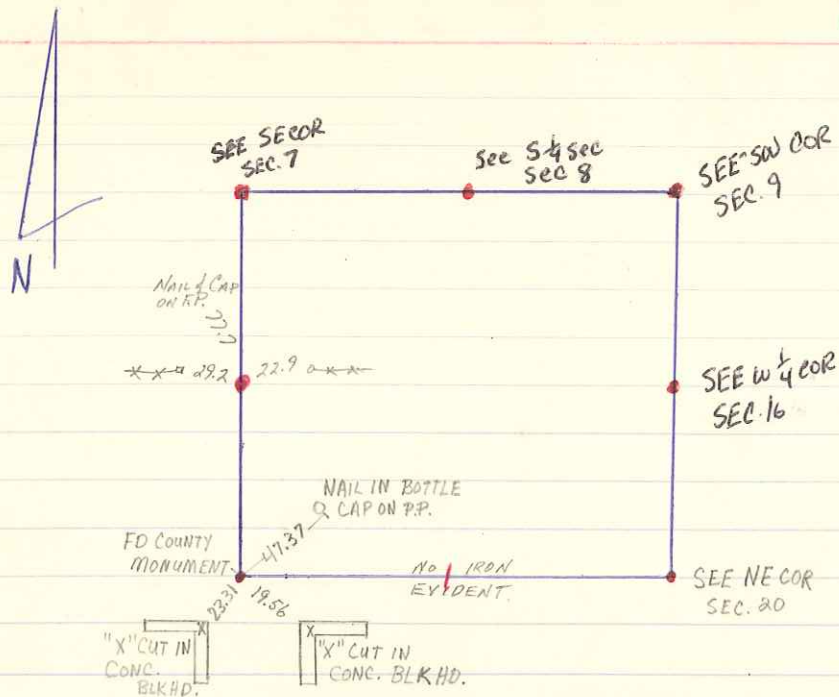 N
SEE SECOR
SEC. 7
See S 1/4 Sec
Sec 8
SEE SW COR
SEC. 9
NAIL & CAP
ON P.P.
77.7
x-x 29.2
22.9 x-x
SEE W 1/4 COR
SEC. 16
NAIL IN BOTTLE
CAP ON P.P.
47.37
FD COUNTY
MONUMENT
NO IRON
EVIDENT.
SEE NE COR
SEC. 20
23.31
19.56
"X" CUT IN
CONC.
BLKHD.
X
X
"X" CUT IN
CONC. BLKHD.